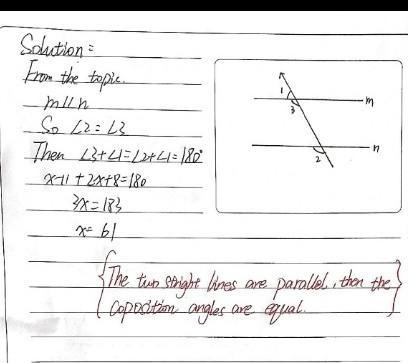 Solution:
From the topic.
m∥n
So ∠2=∠3
Then ∠3+∠1=∠2+∠1=180°
x-11+2x+8=180
3x=183
x=61
1
m
3
n
2
{The two stright lines are parallel, then the}
{copposition angles are equal.}